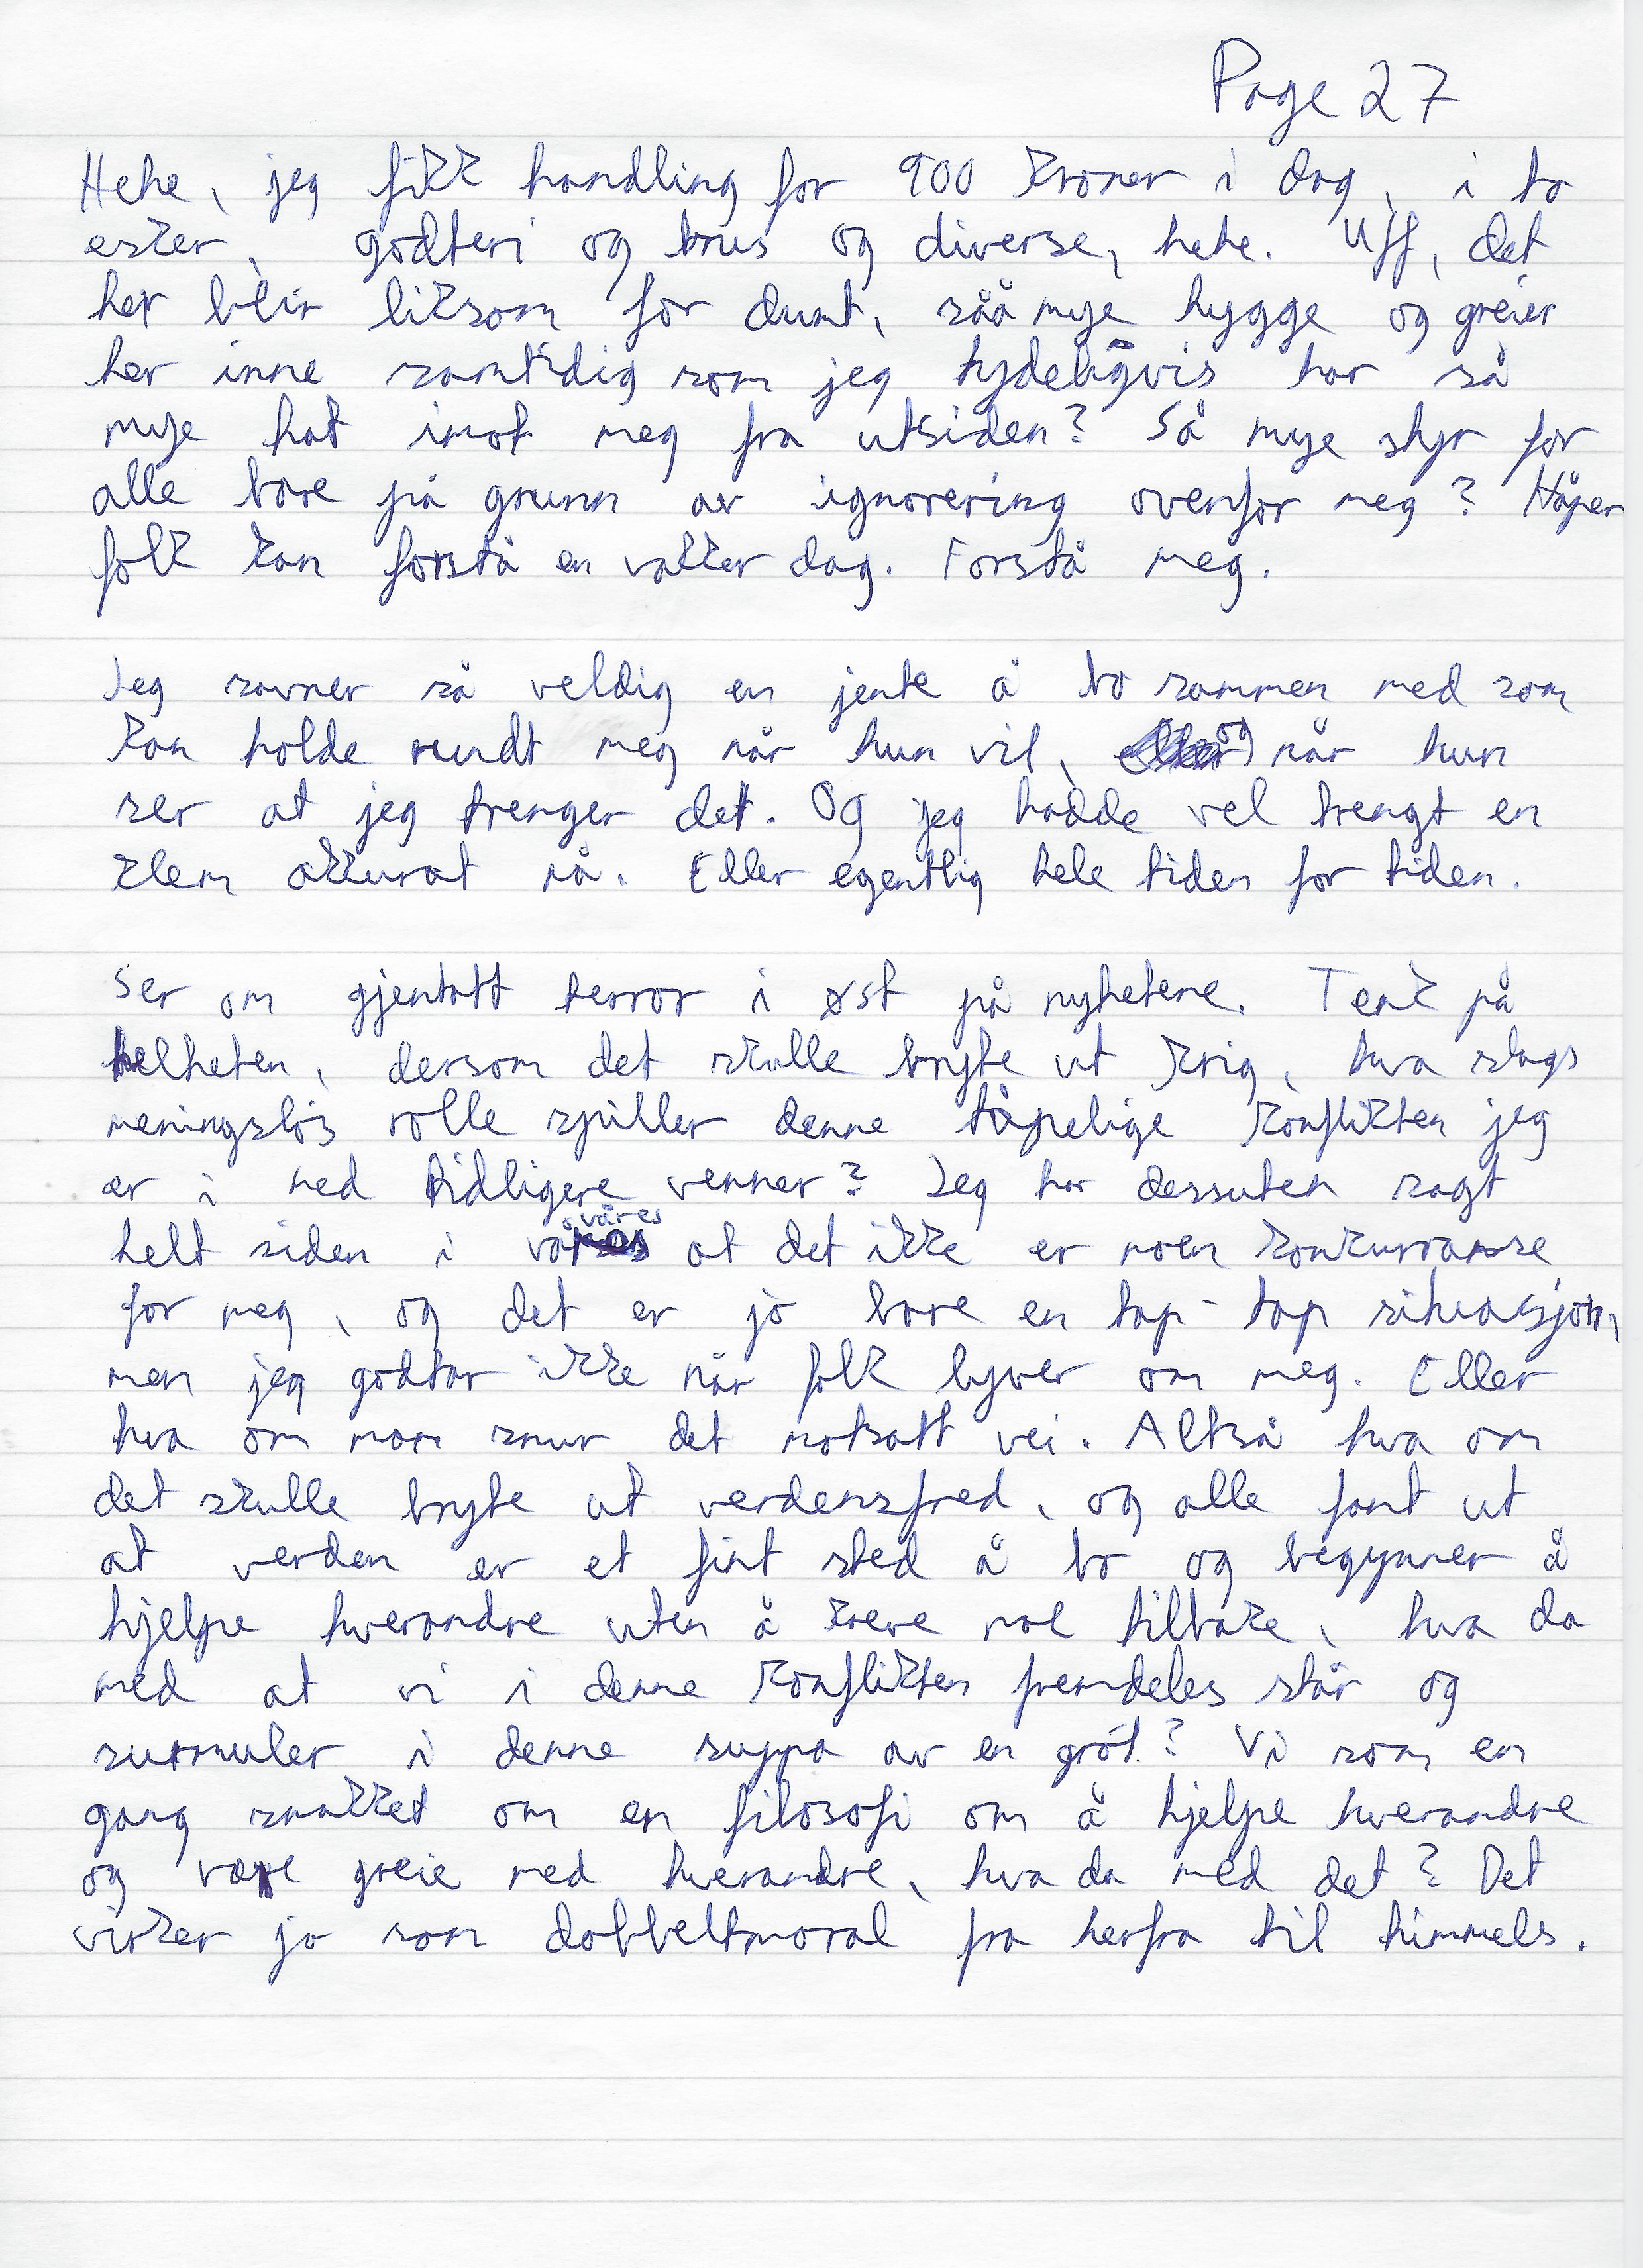 Page 27
Hehe, jeg fikk handling for 900 kroner i dag, i to
esker, godteri og brus og diverse, hehe. Uff, det
her blir liksom for dumt, såå mye hygge og greier
her inne samtidig som jeg tydeligvis har så
mye hat imot meg fra utsiden? Så mye styr for
alle bare på grunn av ignorering ovenfor meg? Håper
folk kan forstå en vakker dag. Forstå meg.
Jeg savner så veldig en jente å bo sammen med som
kan holde rundt meg når hun vil, og når hun
ser at jeg trenger det. Og jeg hadde vel trengt en
klem akkurat nå. Eller egentlig hele tiden for tiden.
Ser om gjentatt terror i øst på nyhetene. Tenk på
helheten, dersom det skulle bryte ut krig, hva slags
meningsløs rolle spiller denne tåpelige konflikten jeg
er i med tidligere venner? Jeg har dessuten sagt
helt siden i våres at det ikke er noen konkurranse
for meg, og det er jo bare en tap-tap situasjon,
men jeg godtar ikke når folk lyver om meg. Eller
hva om man snur det motsatt vei. Altså hva om
det skulle bryte ut verdensfred, og alle fant ut
at verden er et fint sted å bo og begynner å
hjelpe hverandre uten å kreve noe tilbake, hva da
med at vi i denne konflikten fremdeles står og
surmuler i denne suppa av en grøt? Vi som en
gang snakket om en filosofi om å hjelpe hverandre
og være greie med hverandre, hva da med det? Det
virker jo som dobbeltmoral fra herfra til himmels.